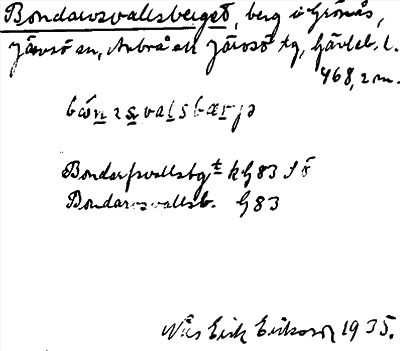 Bondarosvallsberget, berg i Grönås,
Järvsö sn, Arbrå o Järvsö tg, Gävleb. l.
468,2 m.
bónɛsvalsbærjə
Bondarsvallsbgt k G83 SÖ
Bondarosvallsb. G83
Nils Erik Eriksson 1935.